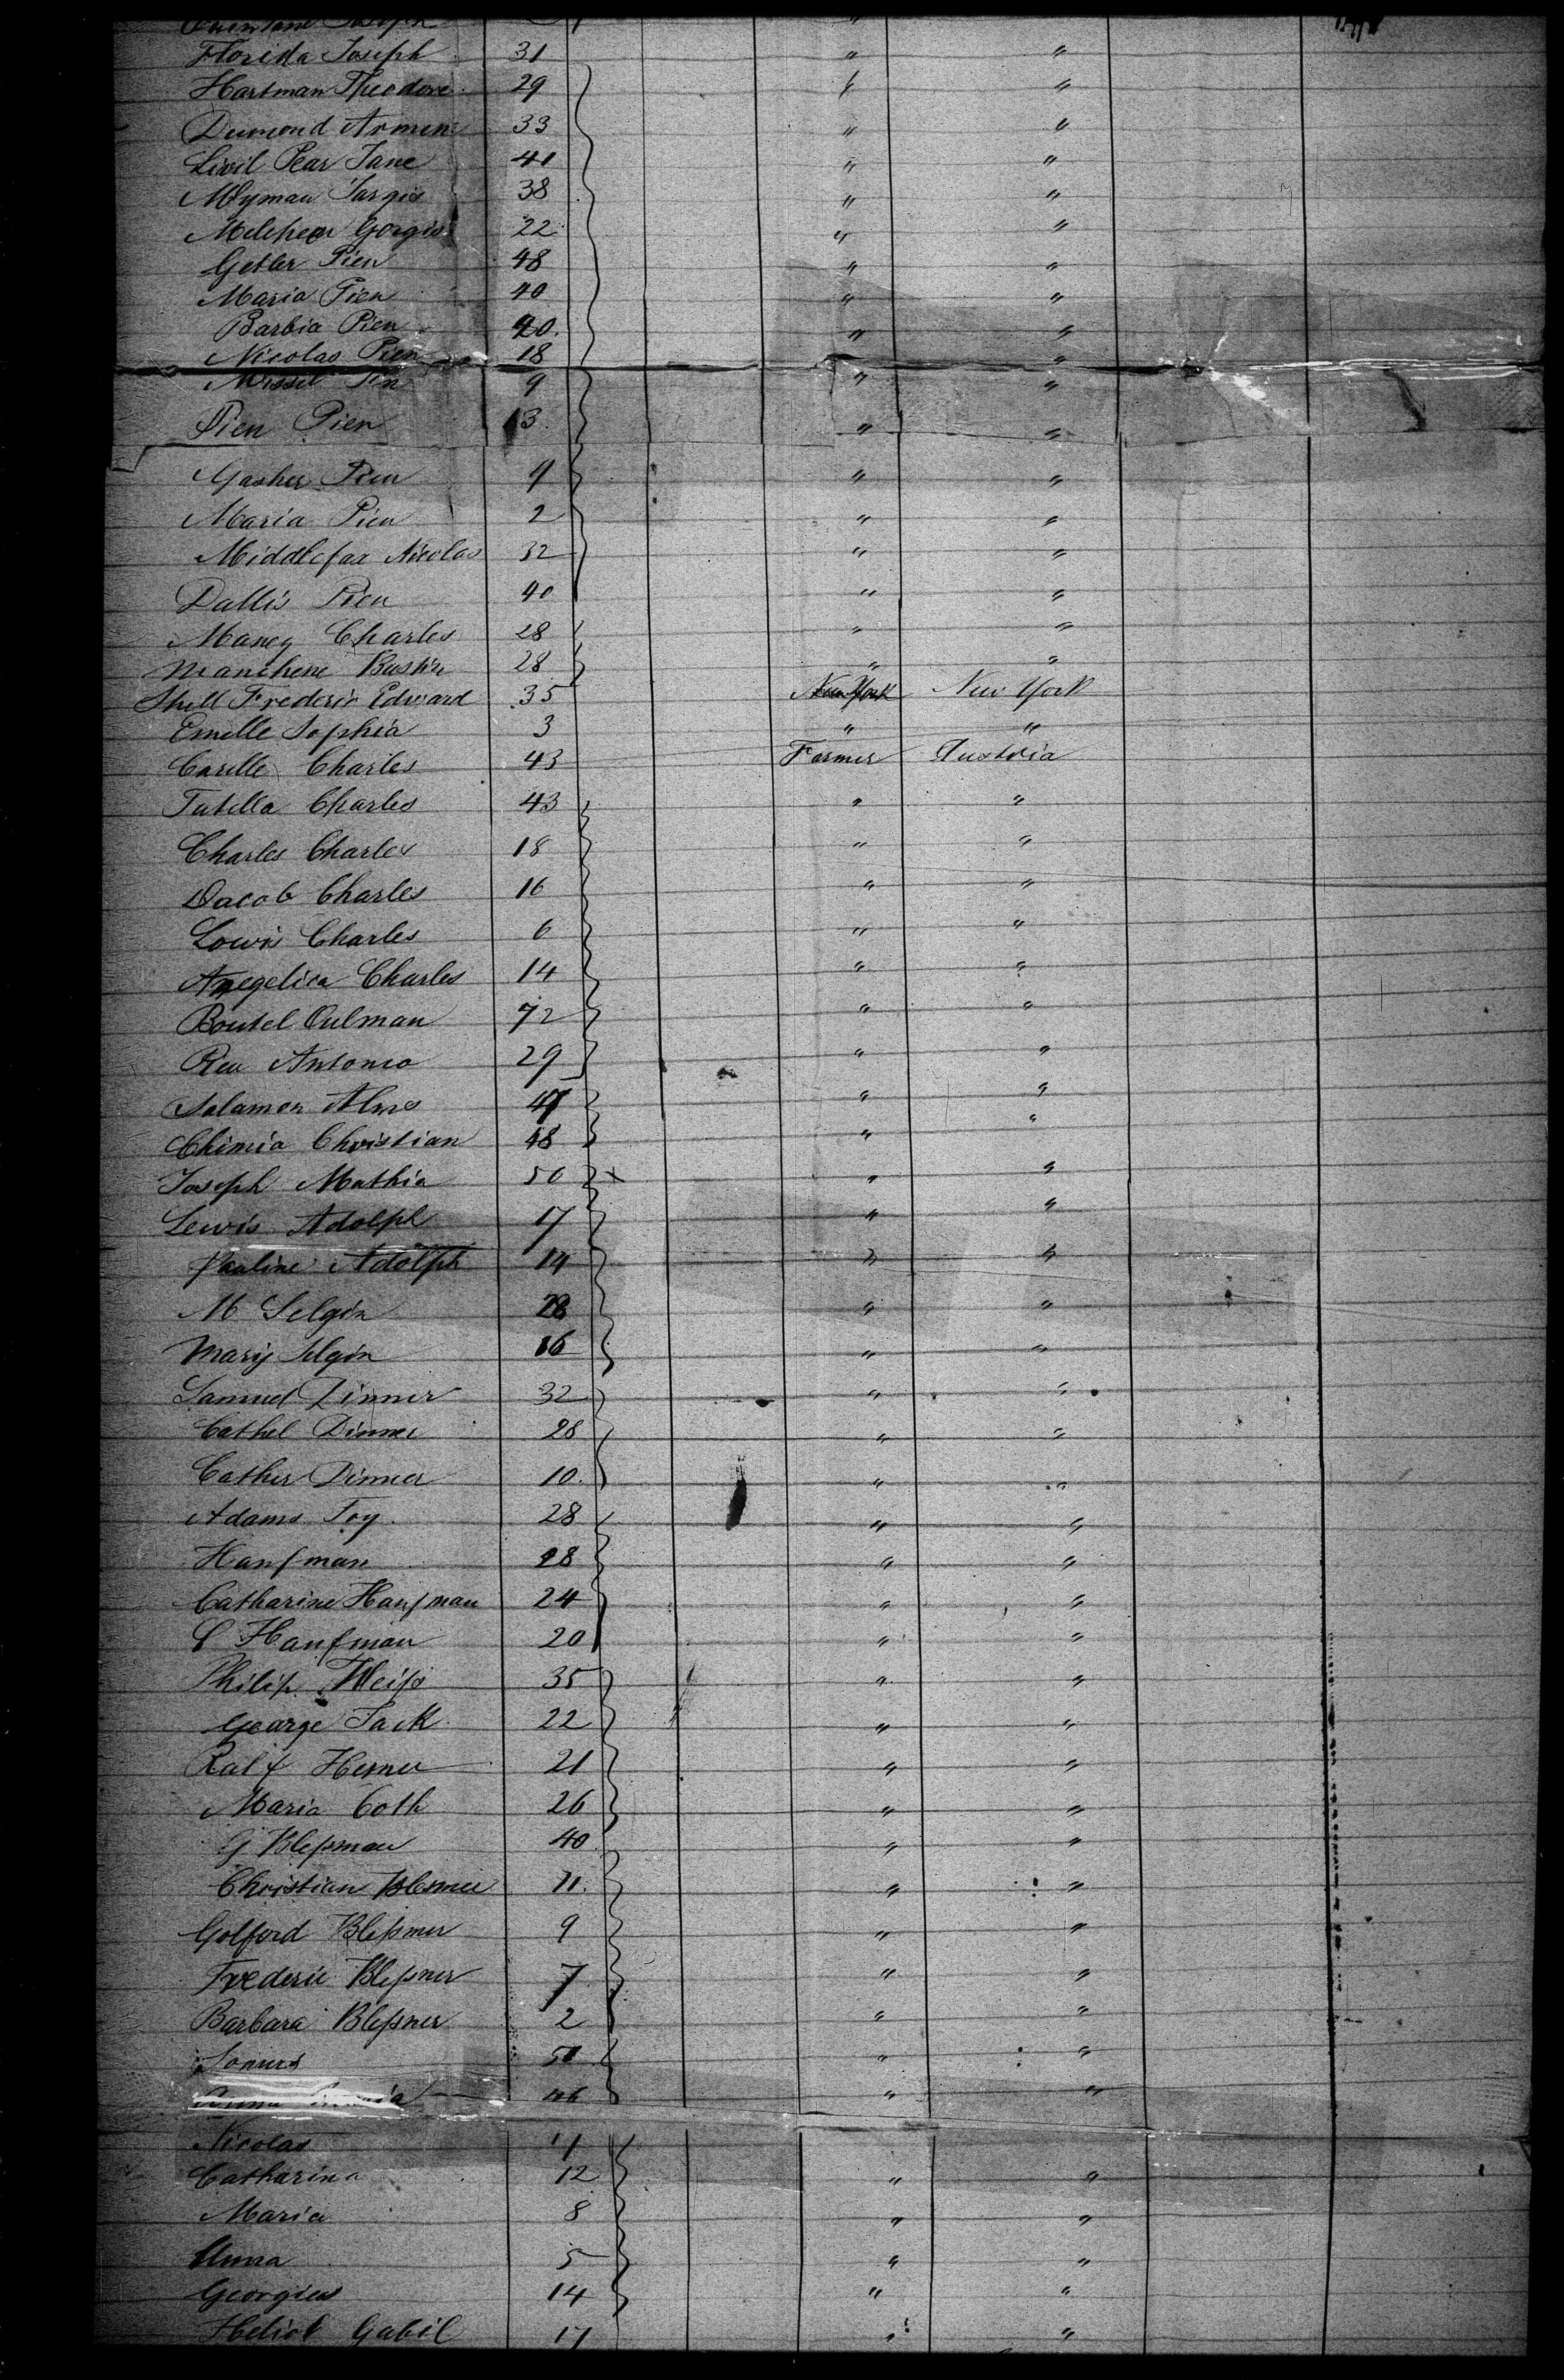 Joseph "
Florida Joseph 31 " "
Hartman Theodore 29 " "
Dumond Armen 33 " "
Livil Pear Jane 41 " "
Wyman Sargis 38 " "
Melcheor Gorgis 22 " "
Getler Pien 48 " "
Maria Pien 40 " "
Barbia Pien 20 " "
Nicolas Pien 18 "
Missil Pin 9 " "
Pien Pien 13 " "
Gasher Pien 4 " "
Maria Pien 2 " "
Middlefax Nicolas 32 " "
Dallis Pien 40 " "
Maney Charles 28 " "
Manchene Bustin 28 " "
Shell Frederic Edward 35 New York New York
Emille Sophia 3 " "
Carille Charles 43 Farmer Austria
Tutilla Charles 43 " "
Charles Charles 18 " "
Jacob Charles 16 " "
Lowis Charles 6 " "
Angelica Charles 14 " "
Boutel Oulman 72 " "
Reu Antonio 29 " "
Salamon Almes 47 " "
Chimia Christian 48 " "
Joseph Mathia 50 x " "
Lewis Adolph 17 " "
Pauline Adolph 14 " "
M Selgin 28 " "
Mary Selgin 16 " "
Samuel Dinner 32 " "
Cathel Dinner 28 " "
Cather Dinner 10 " "
Adams Foy 28 " "
Haufman 28 " "
Catharine Haufman 24 " "
C Haufman 20 " "
Philip Weiss 35 " "
George Jack 22 " "
Ralf Hesner 21 " "
Maria Coth 26 " "
G Blessman 40 " "
Christian Blesmer 11 " "
Golford Blessmer 9 " "
Frederic Blessner 7 " "
Barbara Blessner 2 " "
50 " "
Anna 46 " "
Nicolas 11
Catharina 12 " "
Maria 8 " "
Anna 5 " "
Georgies 14 " "
Heliot Gabil 17 " "